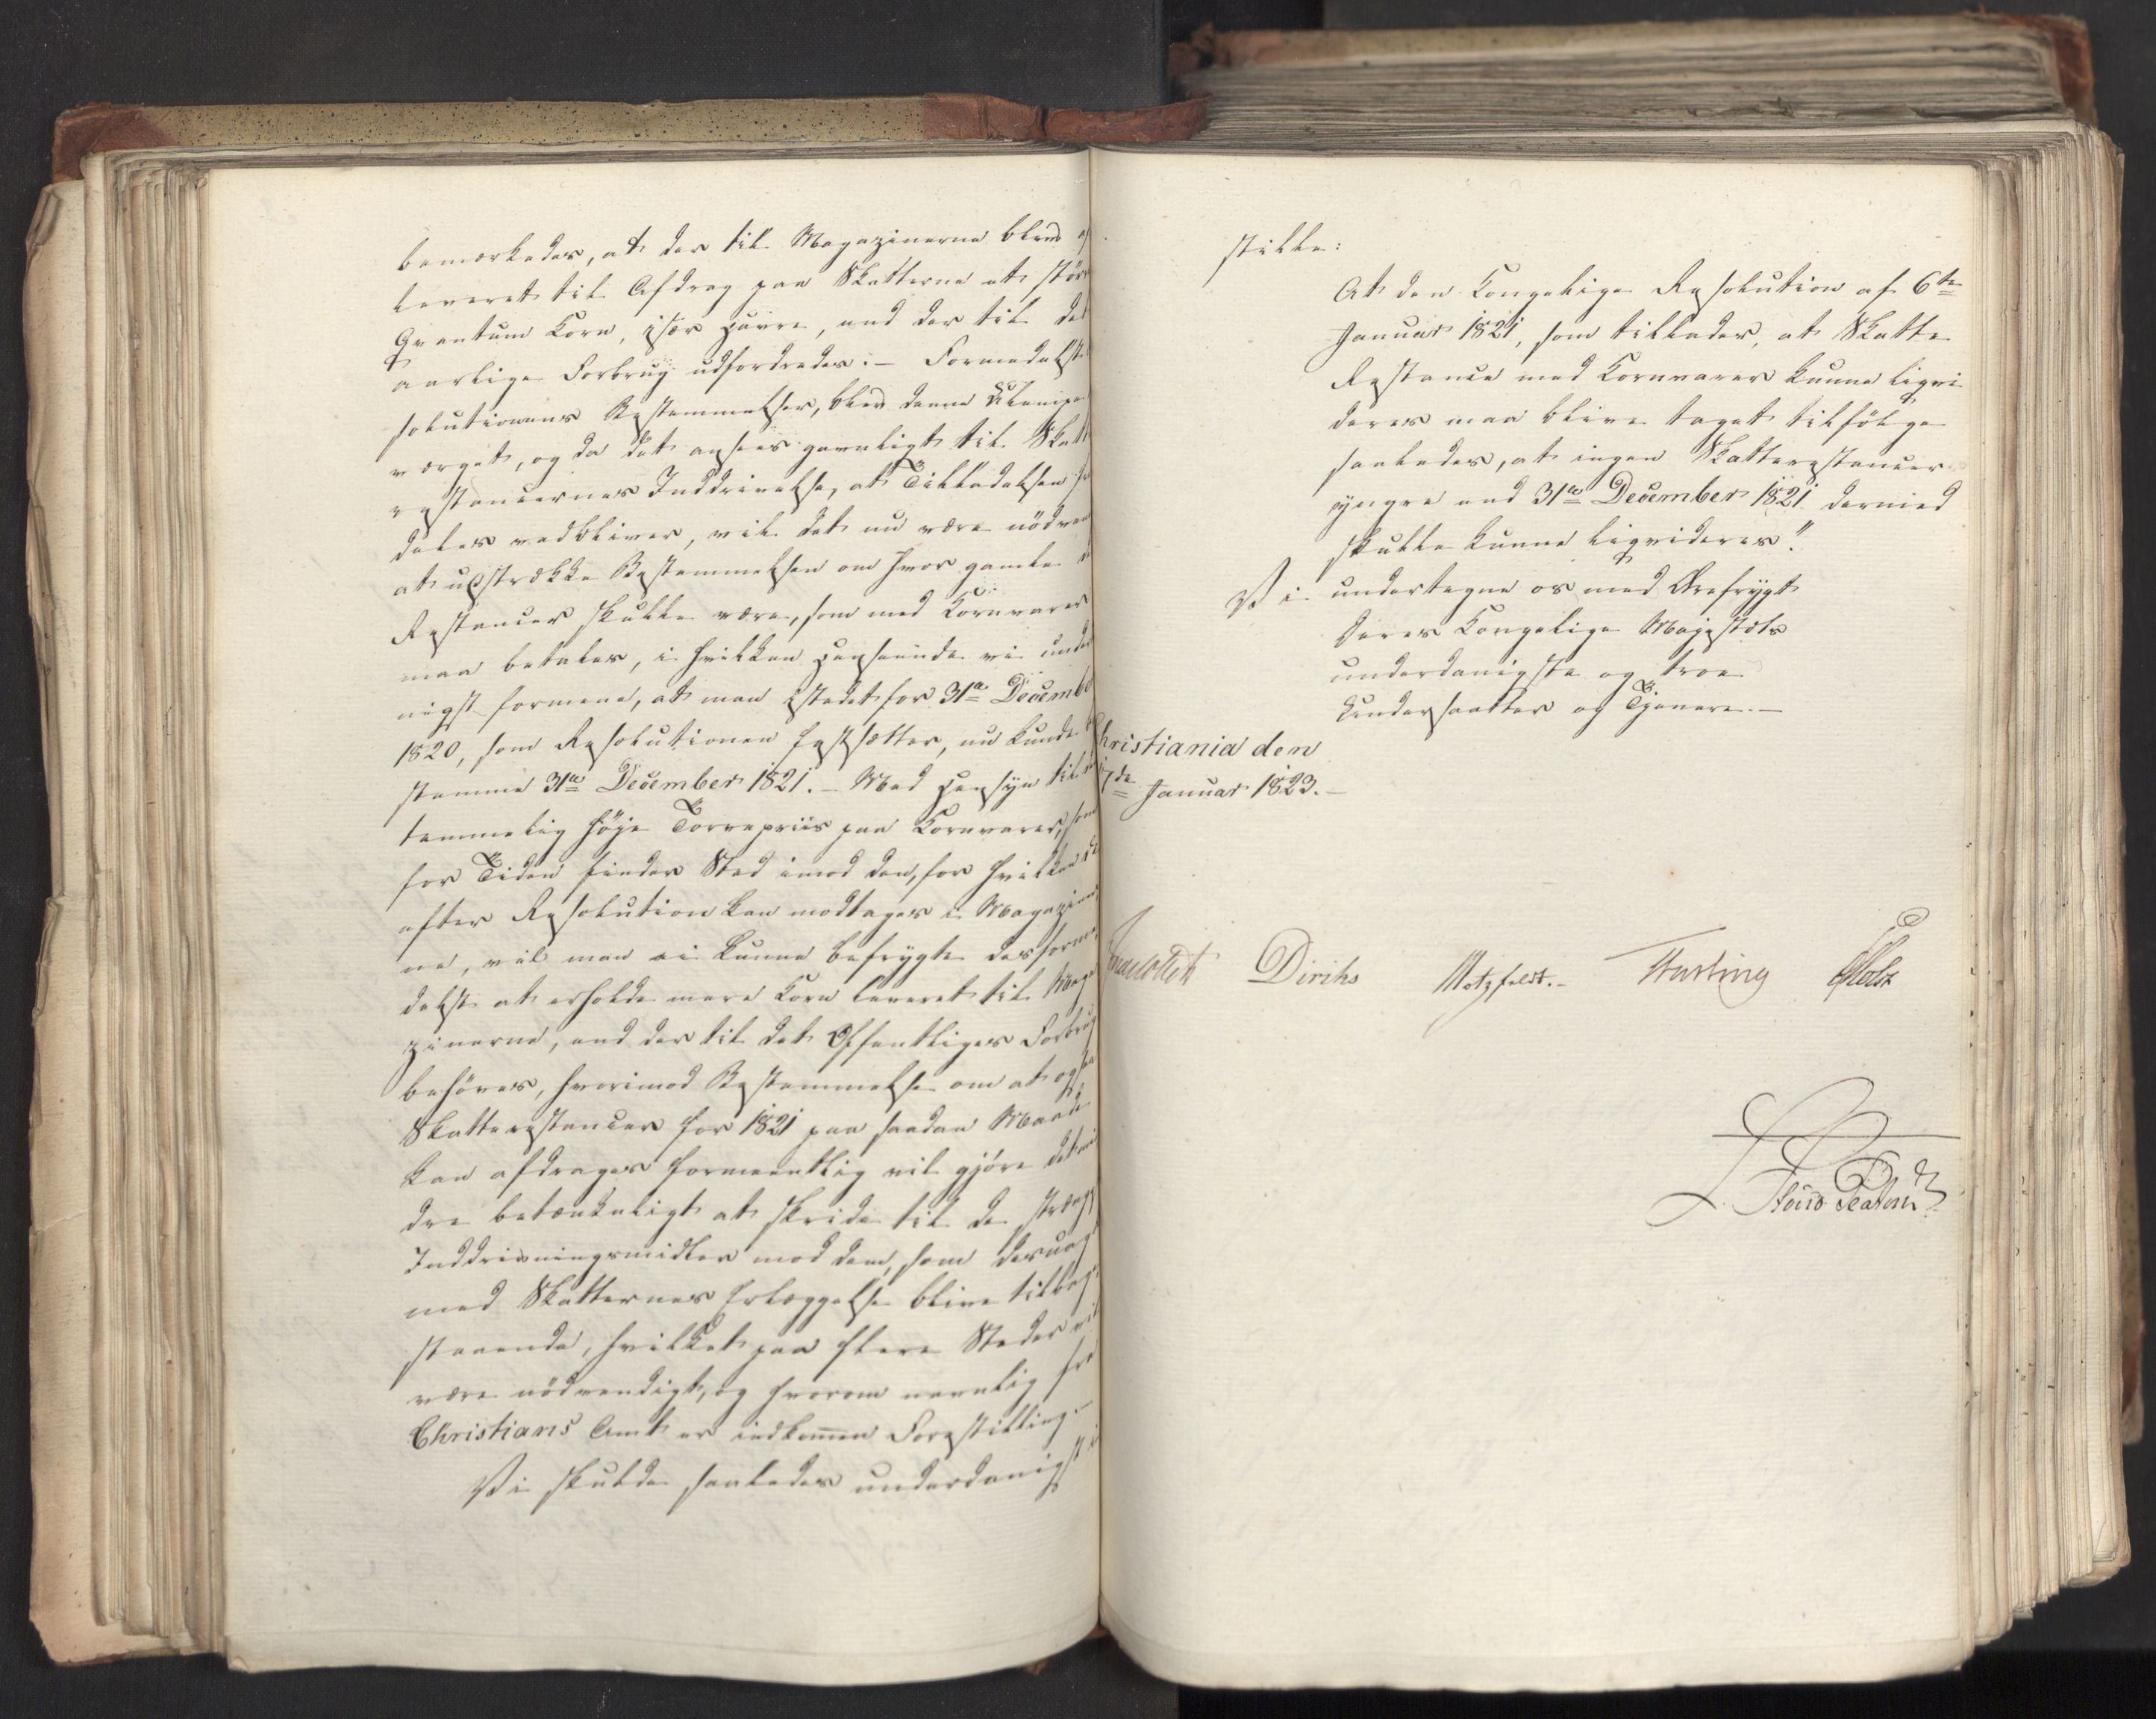 bemærkedes, at der til Magazinerne blev af
leveret til Afdrag paa Skatterne et stör
Qvantum Korn, især Havre, end der til det
aarlige Forbrug udfordredes. – Formedelst
solutionens Bestemmelser, blev denne Ulempe
værget, og da det ansees gavnligt til Skatte
restancernes Inddrivelse, at Tilladelsen
deles vedbliver, vil det nu være nödven
at udstrække Bestemmelsen om hvor gamle
Restancer skulle være, som med Kornvarer
maa betales, i hvilken Henseende vi under
nigst formene, at man istedet for 31te Decembe
1820, som Resolutionen fastsætter, nu kunde be
stemme 31te December 1821. – Med Hensyn til
temmelig höje Torvepriis paa Kornvarer, som
for Tiden finder Sted imod den, for hvilken de
efter Resolution kan modtages i Magazin
ne, vil man ei kunne befrygte desforme
delst at erholde mere Korn leveret til Maga
zinerne, end der til det Offentliges Forbrug
behöves, hvorimod Bestemmelse om at ogsaa
Skatterestancer for 1821 paa saadan Maade
kan afdrages formeentlig vil gjöre det min
dre betænkeligt at skride til de strænge
Inddrivningsmidler mod dem, som desuagt
med Skatternes Erlæggelse blive tilbage
staaende, hvilket paa flere Steder vil
være nödvendigt, og hvorom navnlig fra
Christians Amt er indkommen Forestilling. –
Vi skulde saaledes underdanigst
stille:
At den Kongelige Resolution af 6te
Januar 1821, som tillader, at Skatte
Restance med Kornvarer kunne liqvi
deres maa blive taget tilfölge
saaledes, at ingen Skatterestancer
yngre end 31te December 1821 dermed
skulle kunne liqvideres".
Vi undertegne os med Ærefrygt
Deres Kongelige Majestæts
underdanigste og troe
Undersaatter og Tjenere. –
Christiania den
17de Januar 1823. –
Diriks Motzfeldt. – Holst